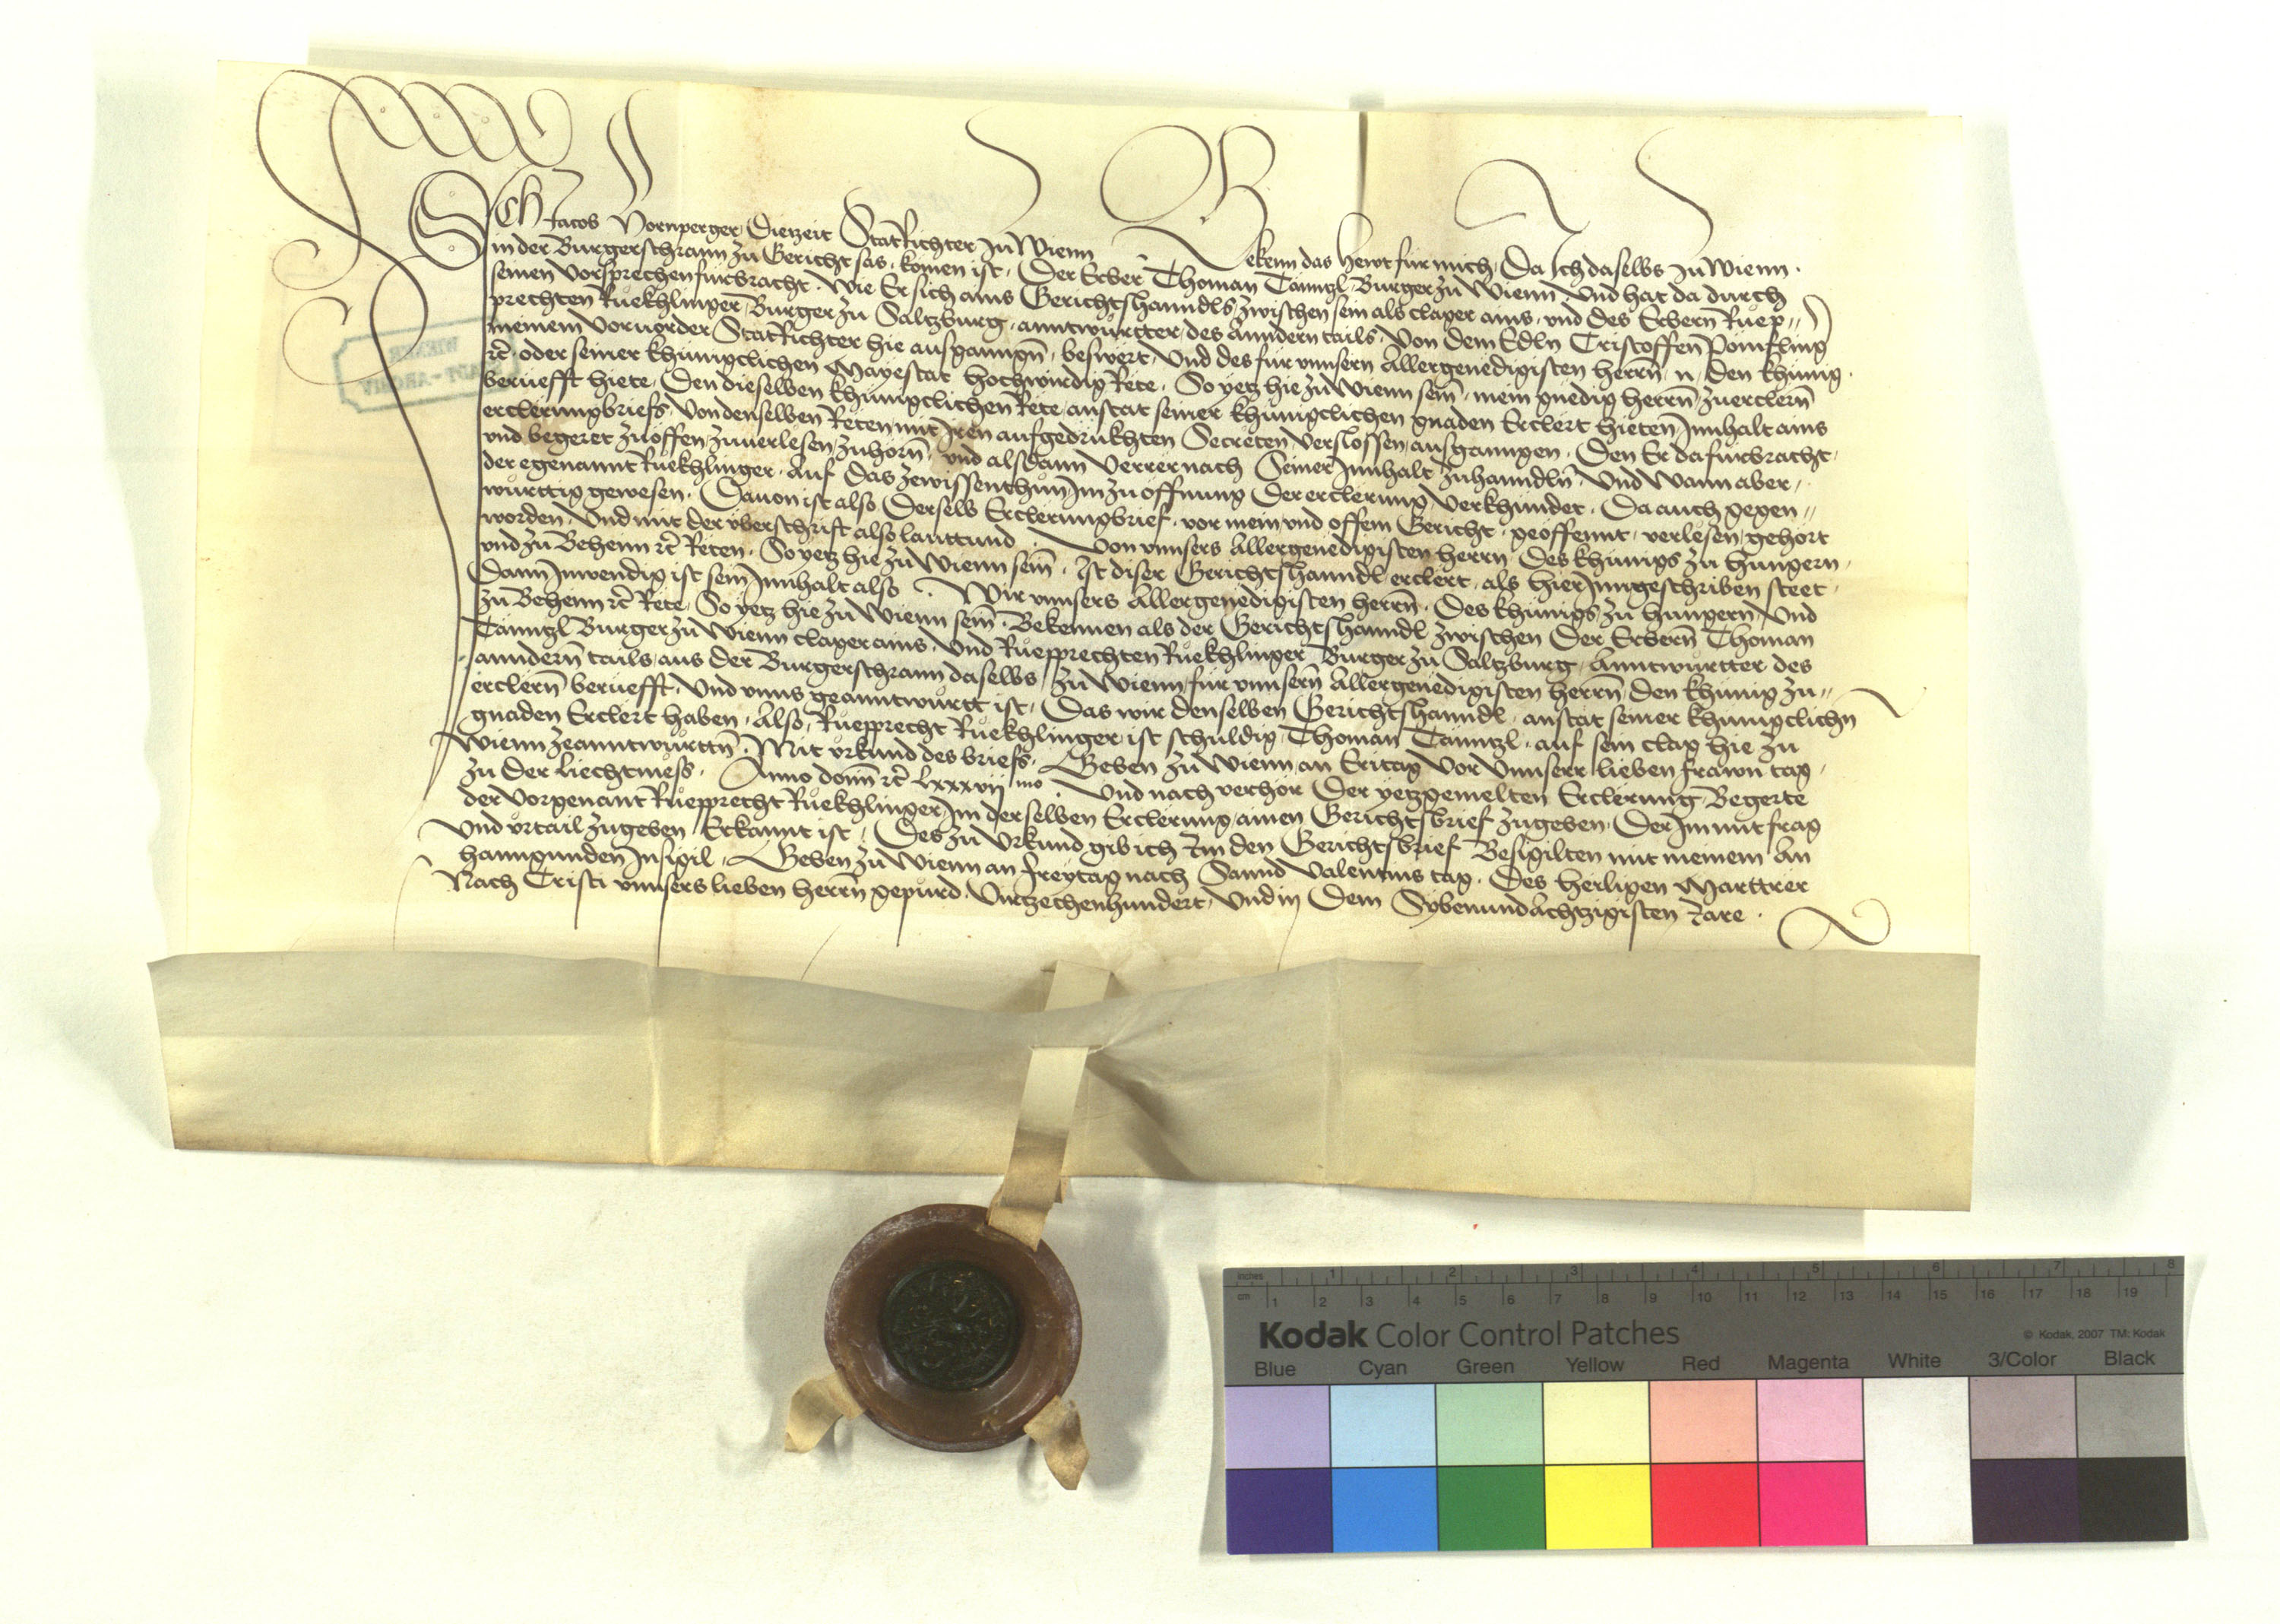 Ich Jacob Nornperger Dietzeit StatRichter zu Wienn Bekenn das hewt für mich, Da Ich daselbs zu Wienn.
in der Burgerschrann zu Gericht sas, komen ist, Der Erber Thoman Tänntzl Burger zu Wienn, Und hat da durch
seinen Vorsprechen fürbracht. Wie Er sich ains Gerichtshanndls zwischen sein als clager ains, und des Erbern Ruep=
prechten Ruekhlinger, Burger zu Saltzburg, anntwurtter, des Anndern tails, Von dem Edln Cristoffen Pömfling
meinem Vorvorder StatRichter hie ausganngn, beswert, Und des für unnsern Allergenedigisten herrn, n, den khünig.
etc. oder seiner khünigclichen Mayestat hochwirdig Rete, So yetz hie zu Wienn sein, mein gnedig herrn zuerclern
berüefft hiete, Den dieselben khünigclichen Rete, anstat seiner khünigclichen gnaden Erclert hieten, Innhalt ains
erclerungbriefs, Von denselben Reten mit Iren aufgedrukhten Secreten, Verslossen, ausganngen. Den Er da fürbracht,
und begeret zu offen, zuverlesen, zuhörn, und alsdann Verrer nach Seiner Innhalt zuhanndln. Und wann aber,
der egenannt Ruekhlinger, Auf Das zewissenthun Im zu öffnung Der erclerung, Verkhündet, Da auch gegen=
württig gewesen. Davon ist also Derselb Erclerungbrief, vor mein und offem Gericht, geöffennt, verlesen, gehört
worden, Und mit der Uberschrift also lauttund. Von unnsers Allergenedigisten herrn Des khünigs zu hungern,
und zu Behem etc. Reten. So yetz hie zu Wienn sein. Ist diser Gerichtshanndl, erclert, als hierInngeschriben steet,
Dann Inwendig ist sein Innhalt also. Wir unnsers Allergenedigisten herrn, Des khünigs zu hungern, und
zu Behem etc. Rete, So yetz hie zu Wienn sein. Bekennen als der Gerichtshanndl zwischen Der Erbern Thoman
Tänntzl Burger zu Wienn clager ains, Und Ruepprechten Ruekhlinger Burger zu Saltzburg, Anntwurtter des
anndern tails, aus der Burgerschrann daselbs, zu Wienn, für unnsern Allergenedigisten herrn, den khünig zu=
erclern berüefft, Und unns geanntwurtt ist, Das wir denselben Gerichtshanndl, anstat seiner khünigclichn
gnaden Erclert haben, Also, Ruepprecht Ruekhlinger ist schuldig Thoman Tänntzl, auf sein clag hie zu
Wienn zeanntwurttn. Mit urkund des briefs. Geben zu Wienn an Eritag Vor Unnserr lieben frawn tag,
zu Der Liechtmess. Anno domini etc. Lxxxvii mo. Und nach verhör Der yetzgemelten Erclerung, Begerte
der Vorgenant Ruepprecht Ruekhlinger, Im derselben Erclerung, ainen Gerichtsbrief zugeben, Der Im mit frag
Und urtail zugeben, Erkannt ist, Des zu Urkund gib ich Im den Gerichtsbrief Besigilten mit meinem An
hanngunden Insigil, Geben zu Wienn an freytag nach Sannd Valentins tag. Des heiligen Marttrer
Nach Cristi unnsers lieben herrn gepurd. Viertzechenhundert, Und in Dem SybenundAchtzigisten Jare.
WIENER
STADT-ARCHIV
inches 1 2 3 4 5 6 7 8
cm 1 2 3 4 5 6 7 8 9 10 11 12 13 14 15 16 17 18 19
Kodak Color Control Patches
© Kodak, 2007 TM: Kodak
Blue Cyan Green Yellow Red Magenta White 3/Color Black